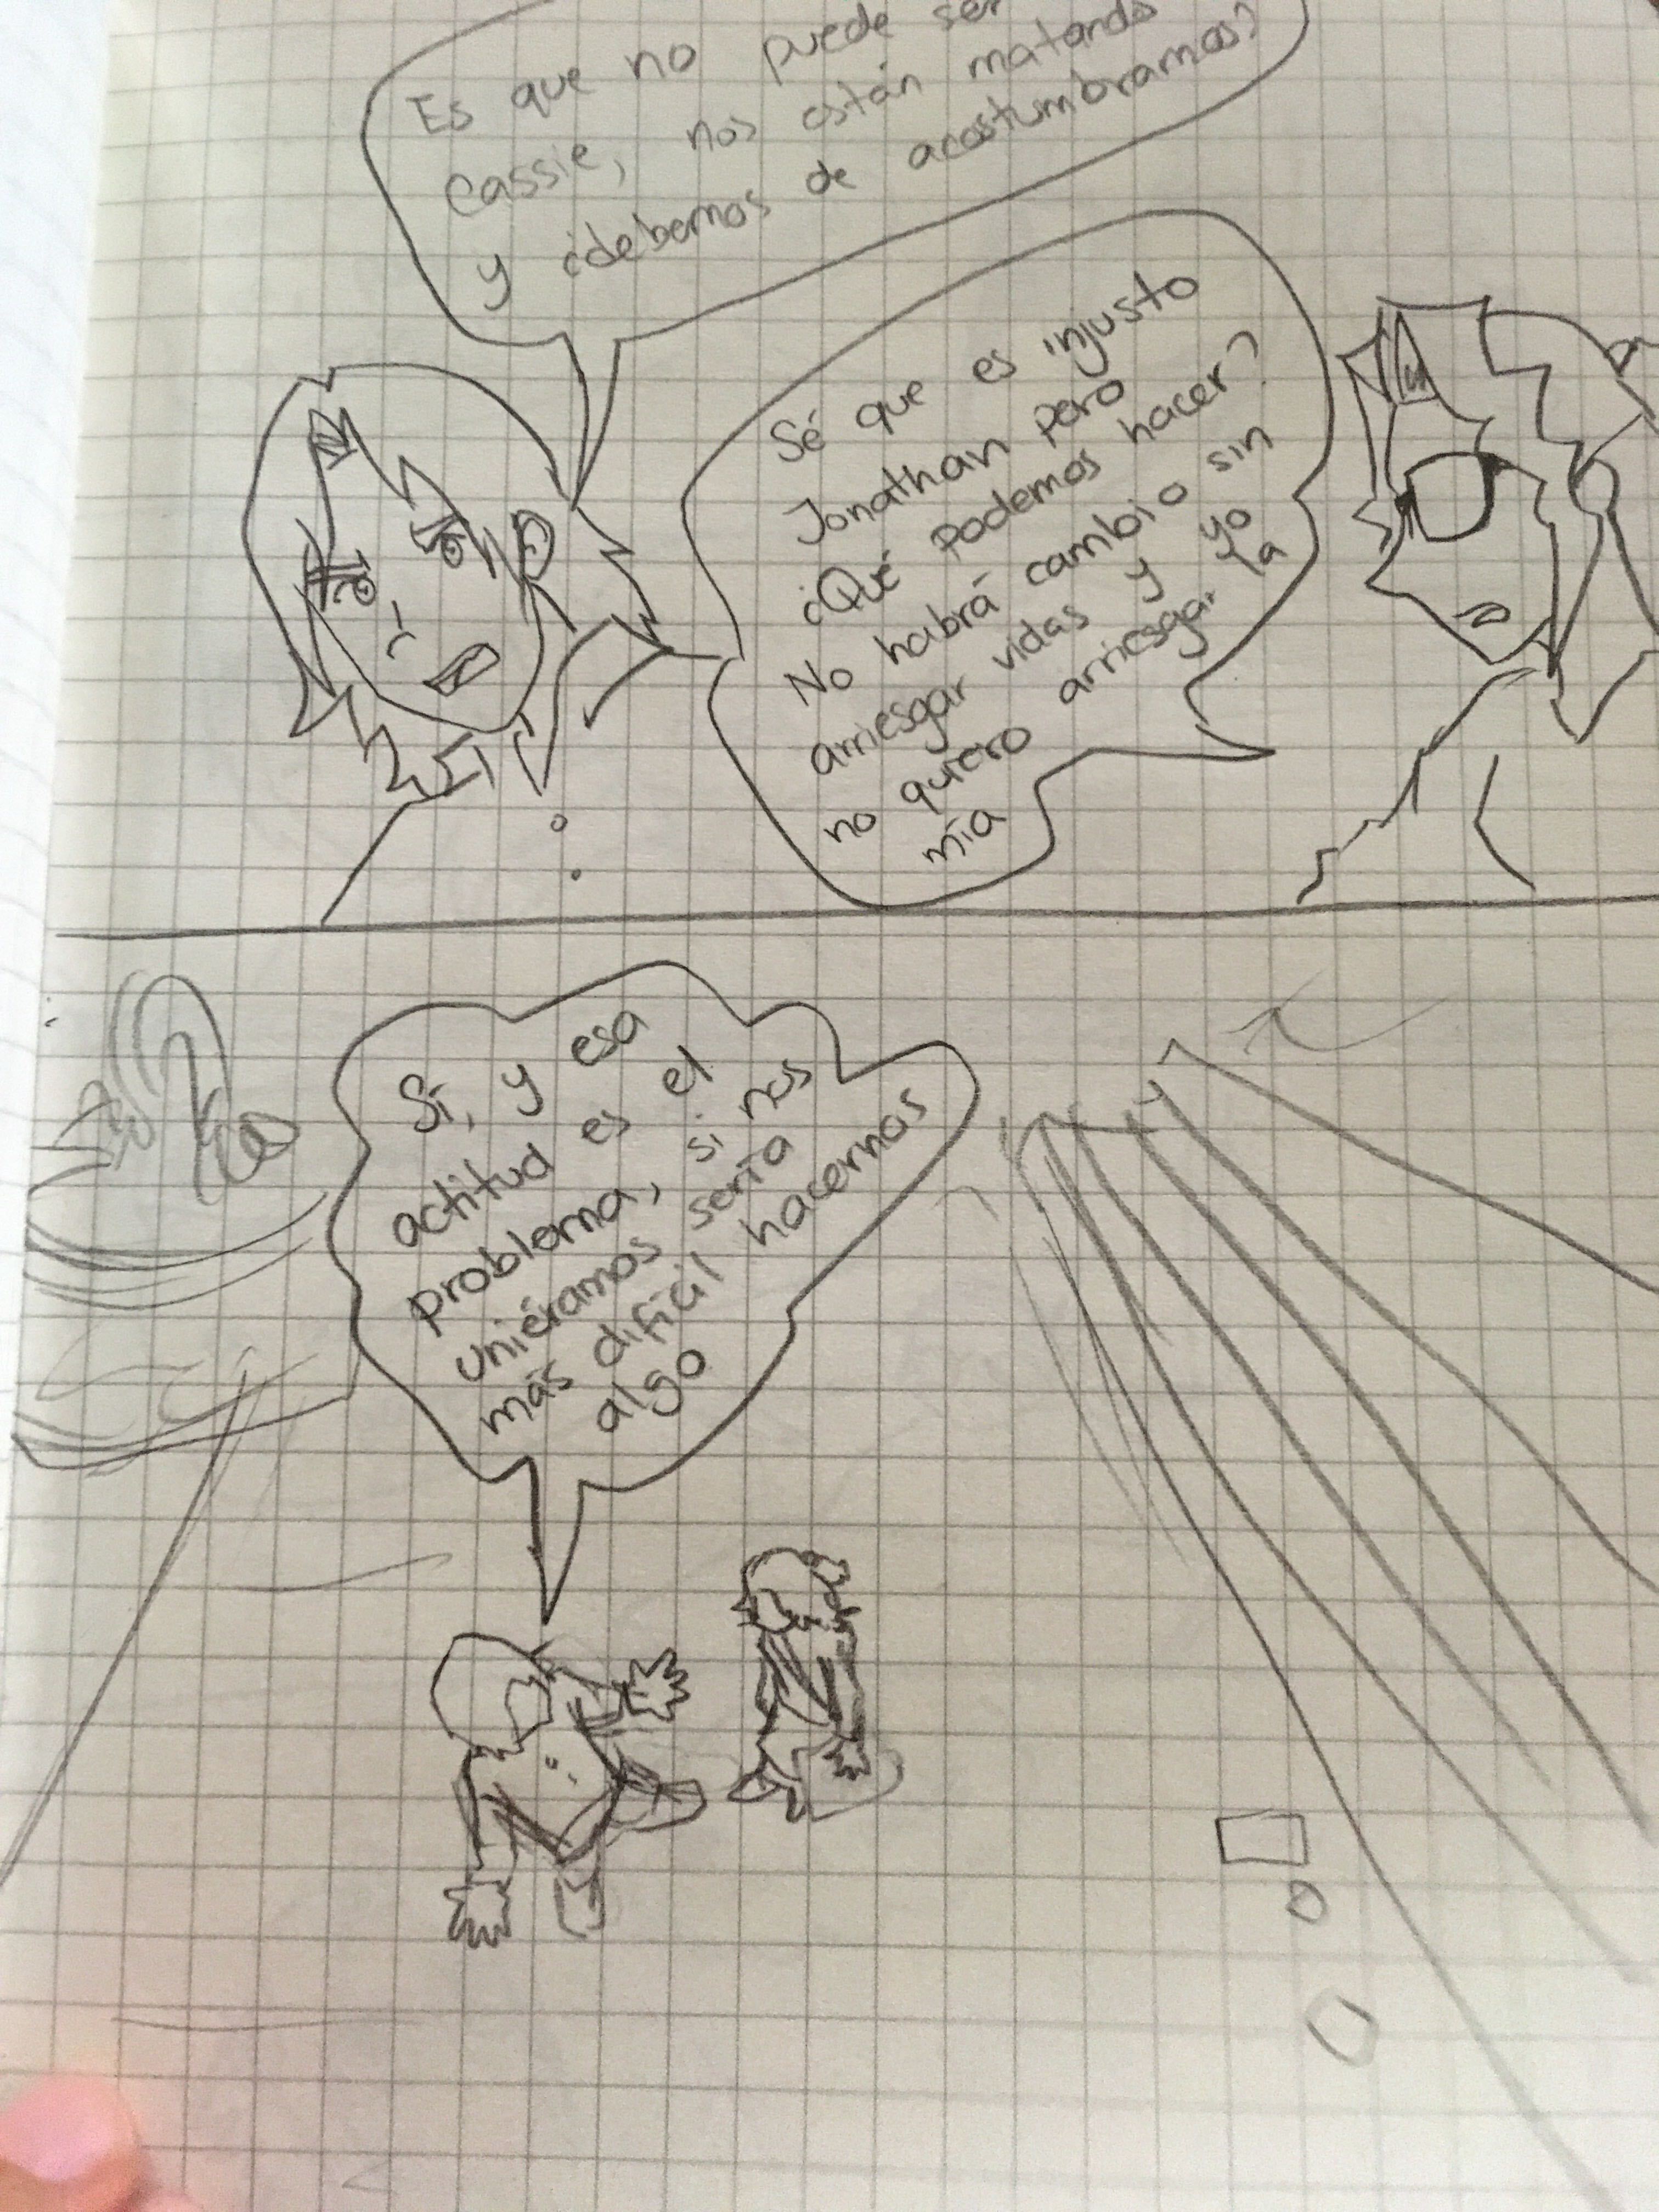 Es que no puede ser
Cassie, nos están matando
y ¿debemos de acostumbrarnos?
Sé que es injusto
Jonathan pero
¿Qué podemos hacer?
No habrá cambio sin
arriesgar vidas y yo
no quiero arriesgar la
mía
Sí, y esa
actitud es el
problema, si nos
uniéramos sería
más difícil hacernos
algo